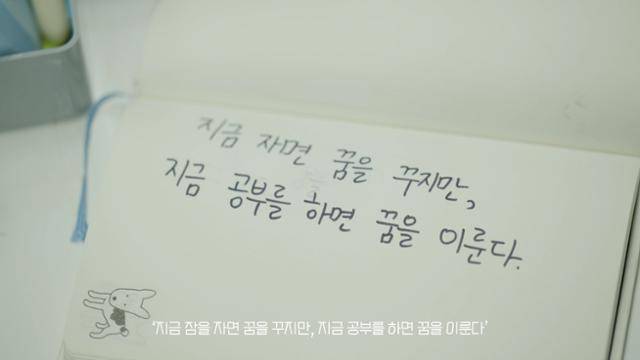 지금 자면 꿈을 꾸지만,
지금 공부를 하면 꿈을 이룬다.
‘지금 잠을 자면 꿈을 꾸지만, 지금 공부를 하면 꿈을 이룬다’